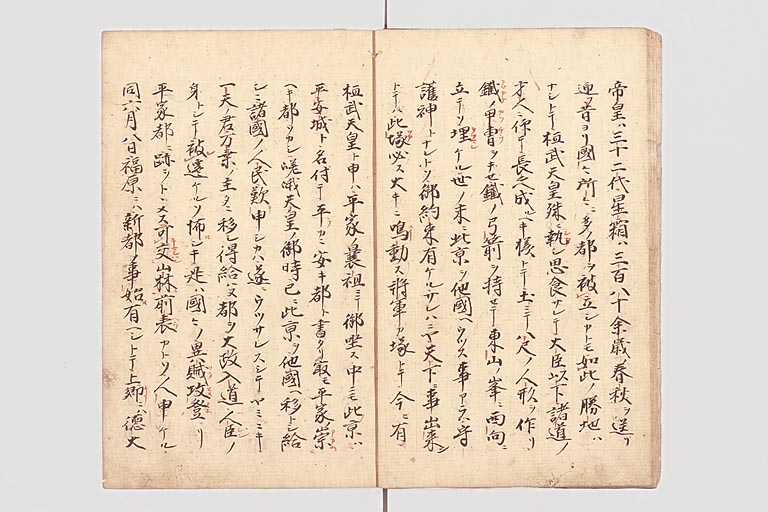 帝皇ハ三十二代星霜ハ三百八十余歳ノ春秋ヲ送リ
迎フ昔ヨリ國々所々ニ多ノ都ヲ被立シカトモ如此ノ勝地ハ
ナシトテ桓武天皇殊ニ執シ思食サレテ大臣以下諸道ノ
才人ニ仰テ長久成ルヘキ様トテ土ニテ八尺ノ人形ヲ作リ
鐵ノ甲冑ヲキセ鐵ノ弓箭ヲ持セテ東山ノ峯ニ西向ニ
立テソ埋ケル世ノ末ニ此京ヲ他國ヘウツス事アラハ守
護神トナレトソ御約束有ケルサレハニヤ天下ニ事出来ン
トテハ此塚必ス大キニ鳴動ス將軍カ塚トテ今ニ有
桓武天皇ト申ハ平家ノ曩祖ニテ御坐ス中ニモ此京ハ
平安城ト名付テ平カニ安キ都ト書タリ最モ平家崇
ヘキ都ソカシ嵯峨天皇ノ御時已ニ此京ヲ他國ヘ移ント給
シニ諸國ノ人民歎申シカハ遂ニウツサレスシテヤミニキ
一天ノ君万乗ノ主タニ移シ得給ハヌ都ヲ大政入道人臣ノ
身トシテ被遷ケルソ怖シキ是ハ國々ノ異賊攻登リ
平家都ニ跡ヲトヽメス可交山林前表カトソ人申ケル
同六月八日福原ニハ新都ノ事始有ヘシトテ上卿ニ徳大